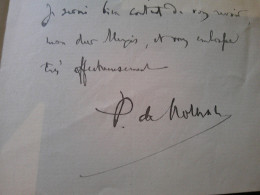 Je serai bien content de vous revoir
mon cher, et vous embrasse
très affectueusement
P. de Nolhac